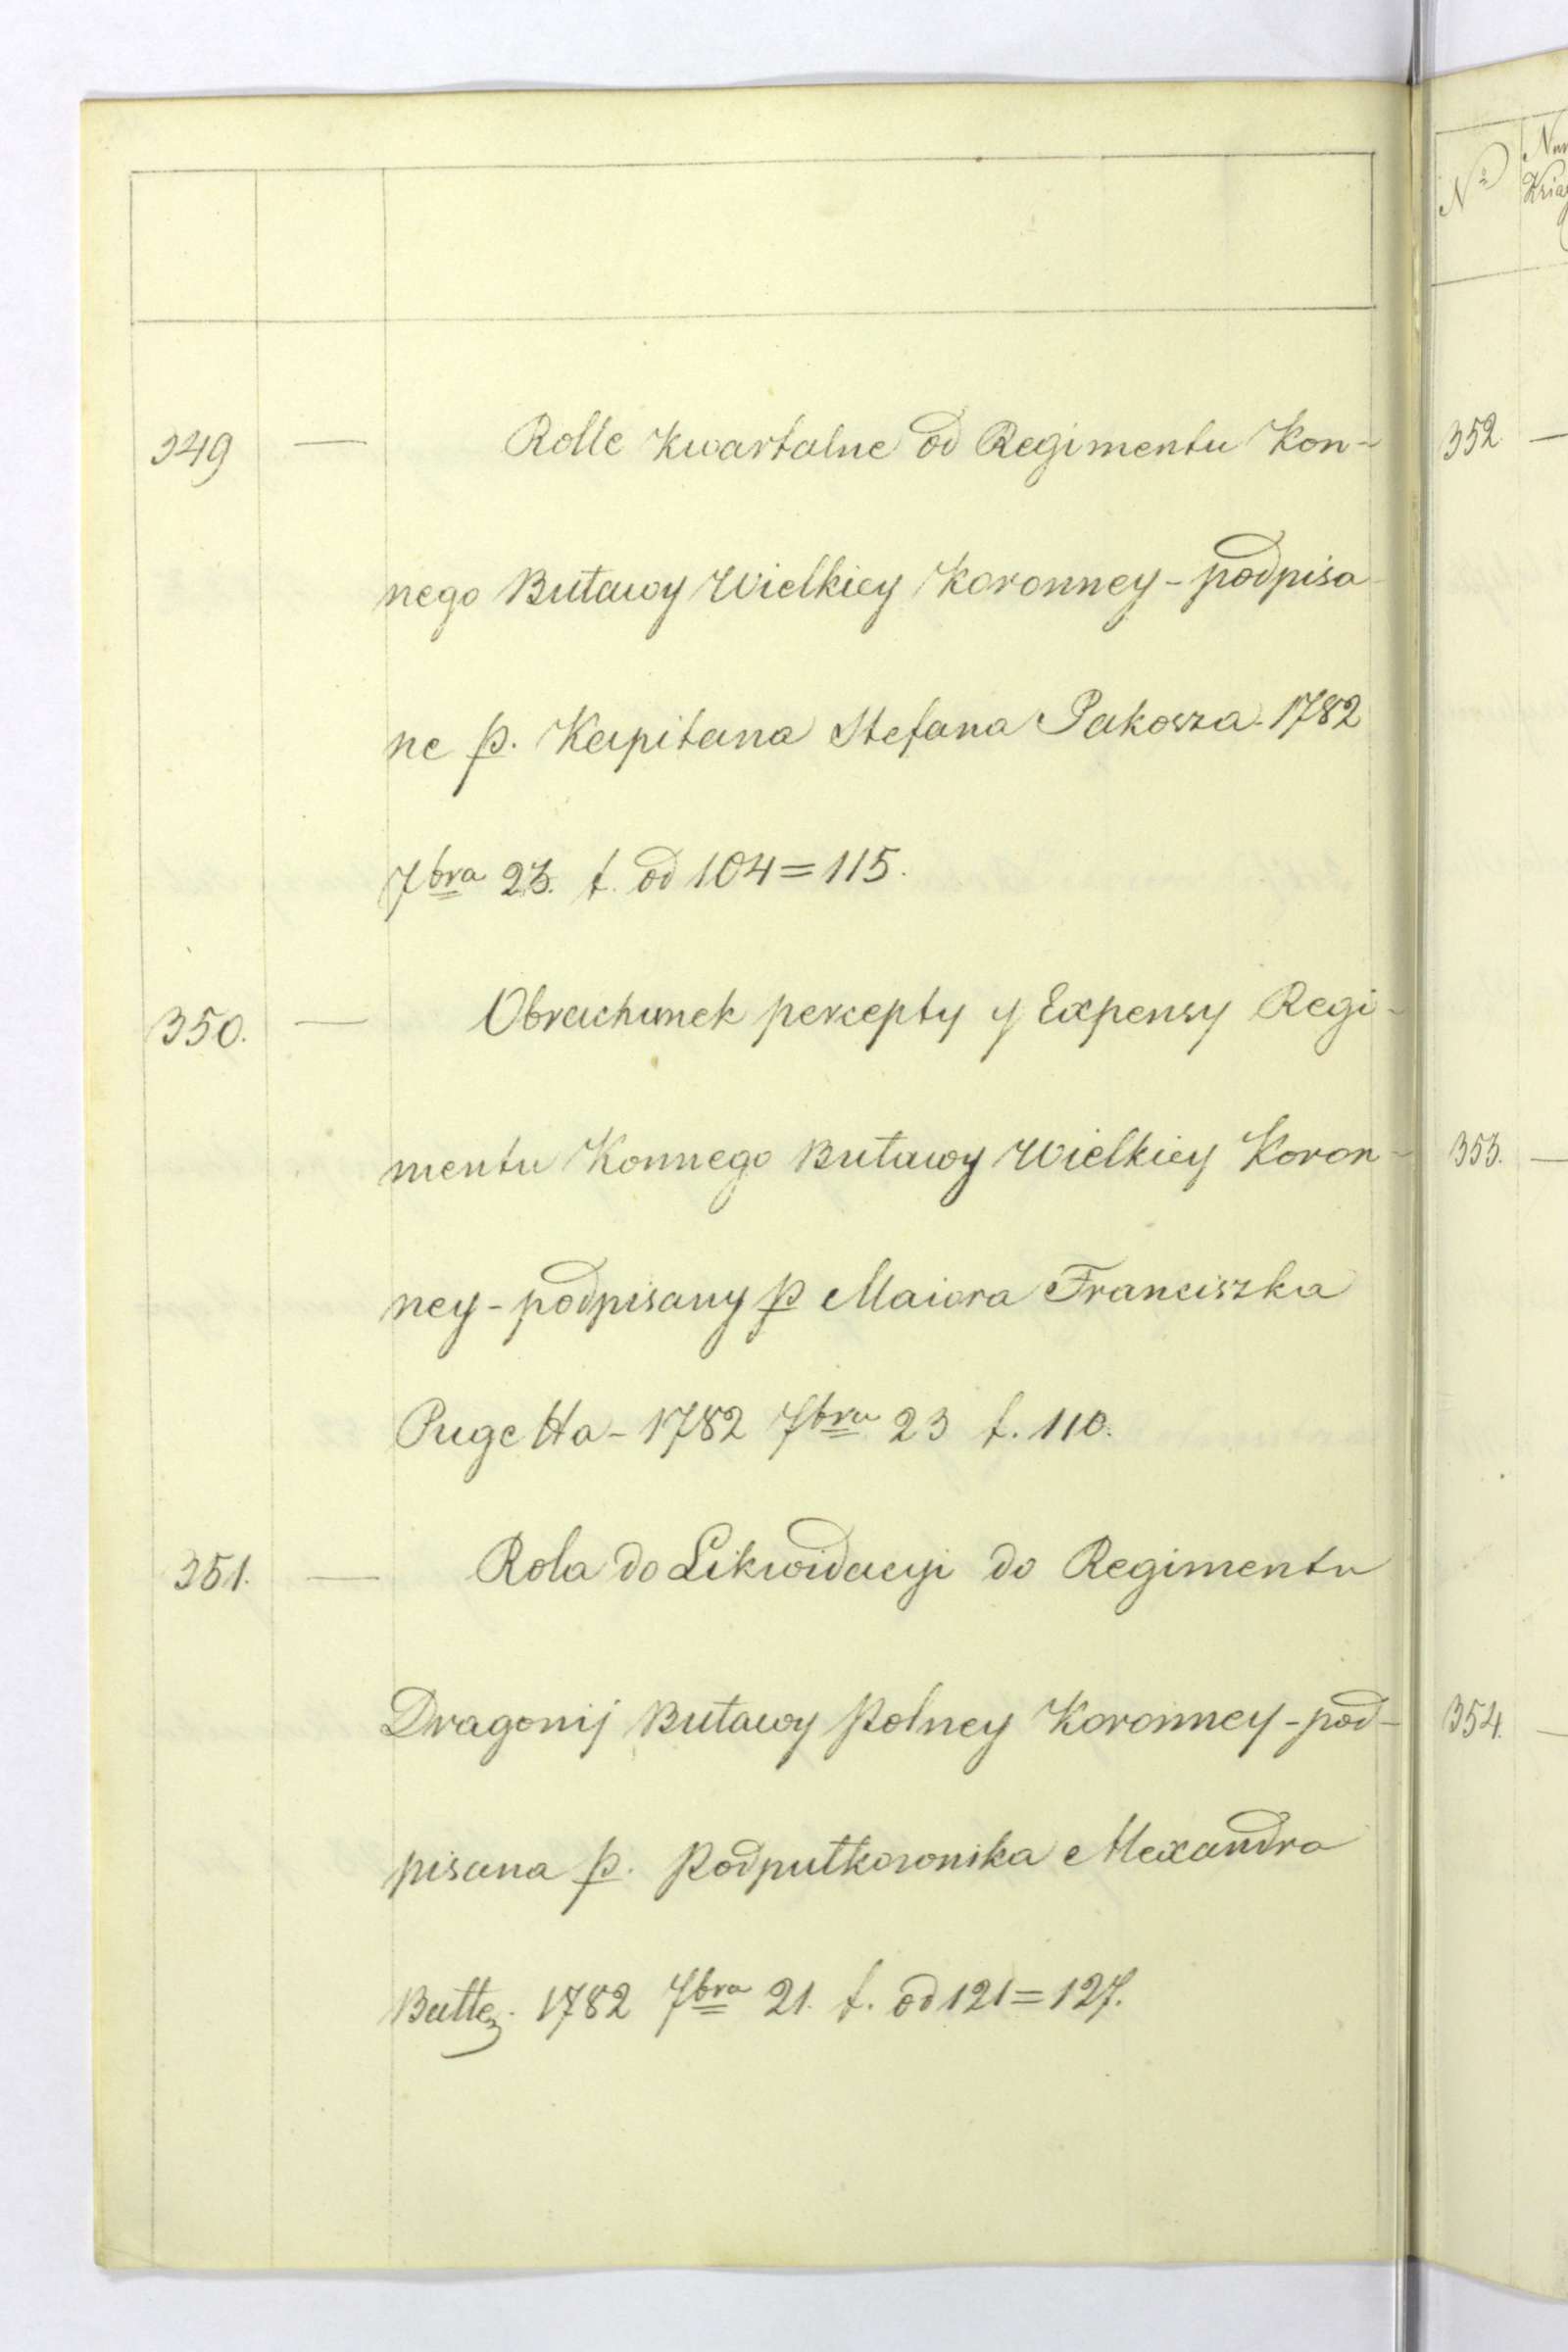 349 — Rolle kwartalne od Regimentu Kon-
nego Buławy Wielkiey Koronney - podpisa
ne p. Kapitana Stefana Pakosza - 1782
7bra 23. f. od 104 = 115.
350. — Obrachunek percepty y Expensy Regi-
mentu Konnego Buławy Wielkiey Koron-
ney - podpisany p Maiora Franciszka
Pugetta - 1782 7bra 23 f. 110.
351. — Rola do Likwidacyi do Regimentu
Dragonij Buławy Polney Koronney - pod-
pisana p. Podpułkownika Alexandra
1782 7bra 21. f. od 121 = 127.
Nº
352 —
353. —
354. —